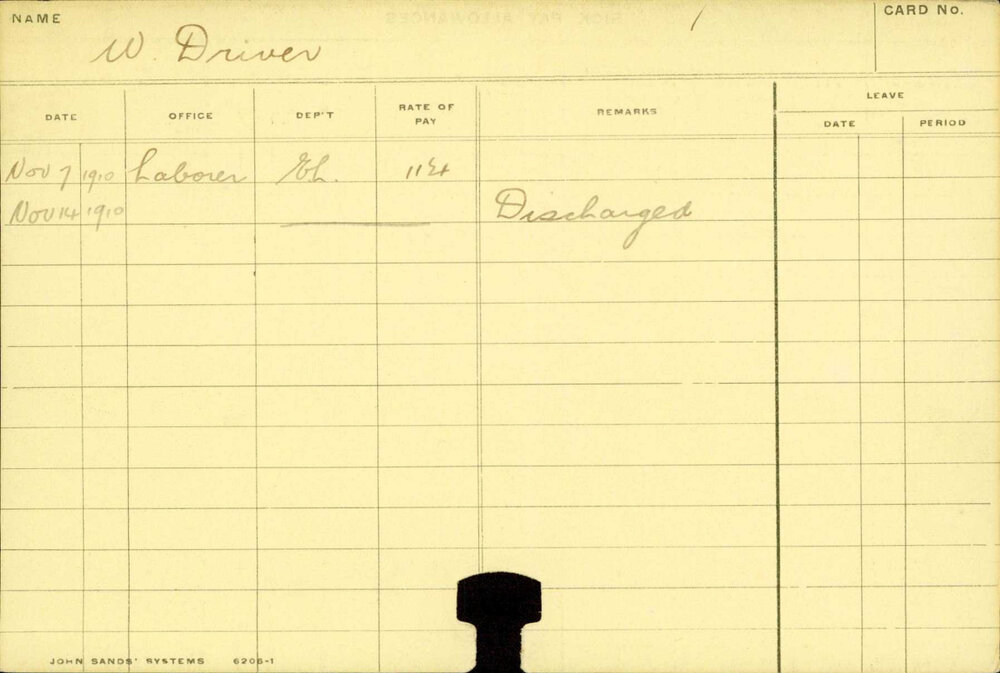 NAME
W. Driver
CARD No.
DATE OFFICE DEP'T RATE OF PAY REMARKS LEAVE
DATE PERIOD
Nov 7 1910 Laborer
Nov 14 1910 Discharged
JOHN SANDS' SYSTEMS 6206-1